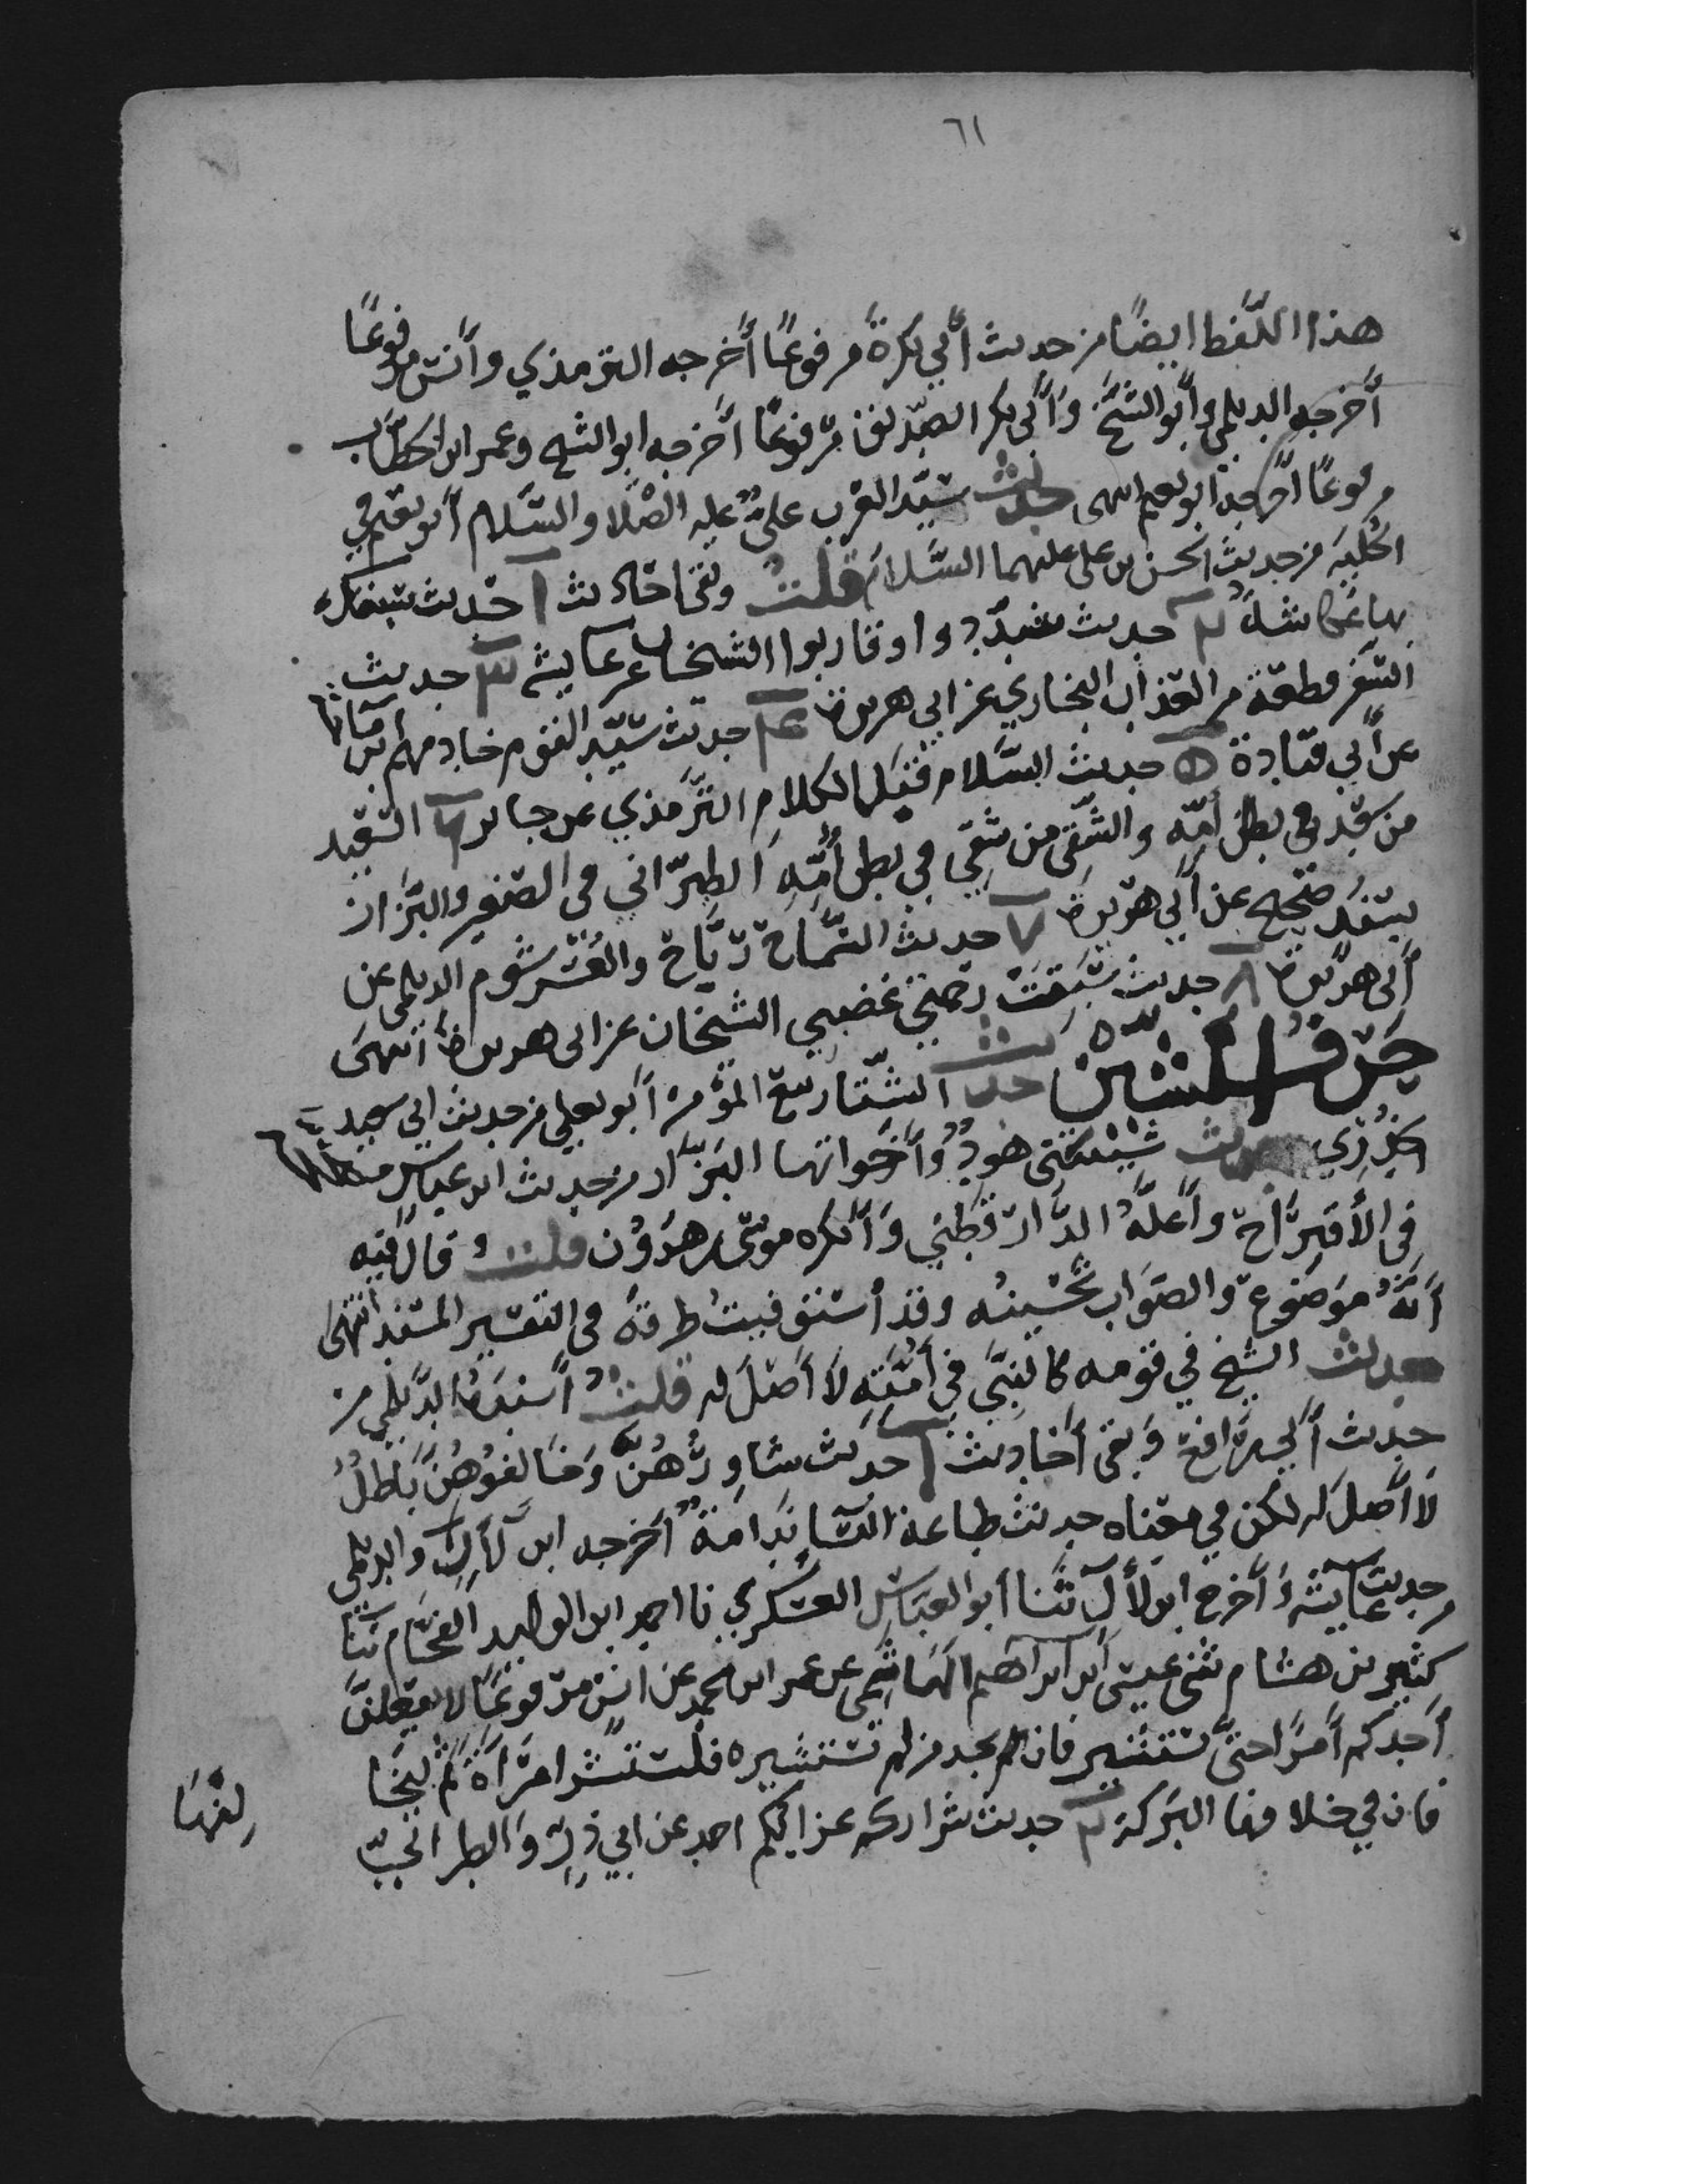 ٦١
هذا اللفظ ايضًا من حديث أبي بكرة مرفوعًا أخرجه الترمذي وأنس مرفوعًا
أخرجه الديلمي وأبو الشيخ وأبي بكر الصديق مرفوعًا أخرجه ابو الشيخ وعمر ابن الخطاب
مرفوعًا أخرجه ابو نعيم انتهى حديث سيد العرب علي عليه الصلاة والسلام أبو نعيم في
الحلية من حديث الحسن بن علي عليهما السلام قلت وبقي احاديث ١ حديث سبقك
بها عكاشة ٢ حديث سددوا وقاربوا الشيخان عن عايشة ٣ حديث
السفر قطعة من العذاب البخاري عن ابي هريرة ٤ حديث سيد القوم خادمهم ابن ماجة
عن أبي قتادة ٥ حديث السلام قبل الكلام الترمذي عن جابر ٦ السعيد
من سعد في بطن أمه والشقي من شقي في بطن أمه الطبراني في الصغير والبزار
بسند صحيح عن أبي هريرة ٧ حديث السماح رباح والعسر شوم الديلمي عن
أبي هريرة ٨ حديث سبقت رحمتي غضبي الشيخان عن ابي هريرة انتهى
حرف الشين حديث الشتا ربيع المؤمن أبو يعلي من حديث ابي سعيد
الخدري حديث شيبتني هود وأخواتها البزار من حديث ابن عباس
في الأقتراح وأعله الدارقطني وأنكره موسى بن هرون قلت وقال فيه
أنه موضوع والصواب تحسينه وقد أستوفيت طرقه في التفسير المسند انتهى
حديث الشيخ في قومه كالنبي في أمته لا أصل له قلت أسنده الديلمي من
حديث أبي رافع وبقي أحاديث ١ حديث شاوروهن وخالفوهن باطل
لا أصل له لكن في معناه حديث طاعة النسا ندامة أخرجه ابن لأل والديلمي
من حديث عايشة وأخرج ابن لأل ثنا أبو العباس العسكري نا احمد ابن الوليد الفحام ثنا
كثير بن هشام ثنى عيسى ابن ابراهيم الهاشمي عن عمر ابن محمد عن انس مرفوعًا لا يفعلن
أحدكم أمرًا حتى يستشير فان لم يجد من يستشيره فليستشر امرأة ثم ليخا
لفها
فان في خلافها البركة ٢ حديث شراركم عزابكم احمد عن ابي ذر والطبراني